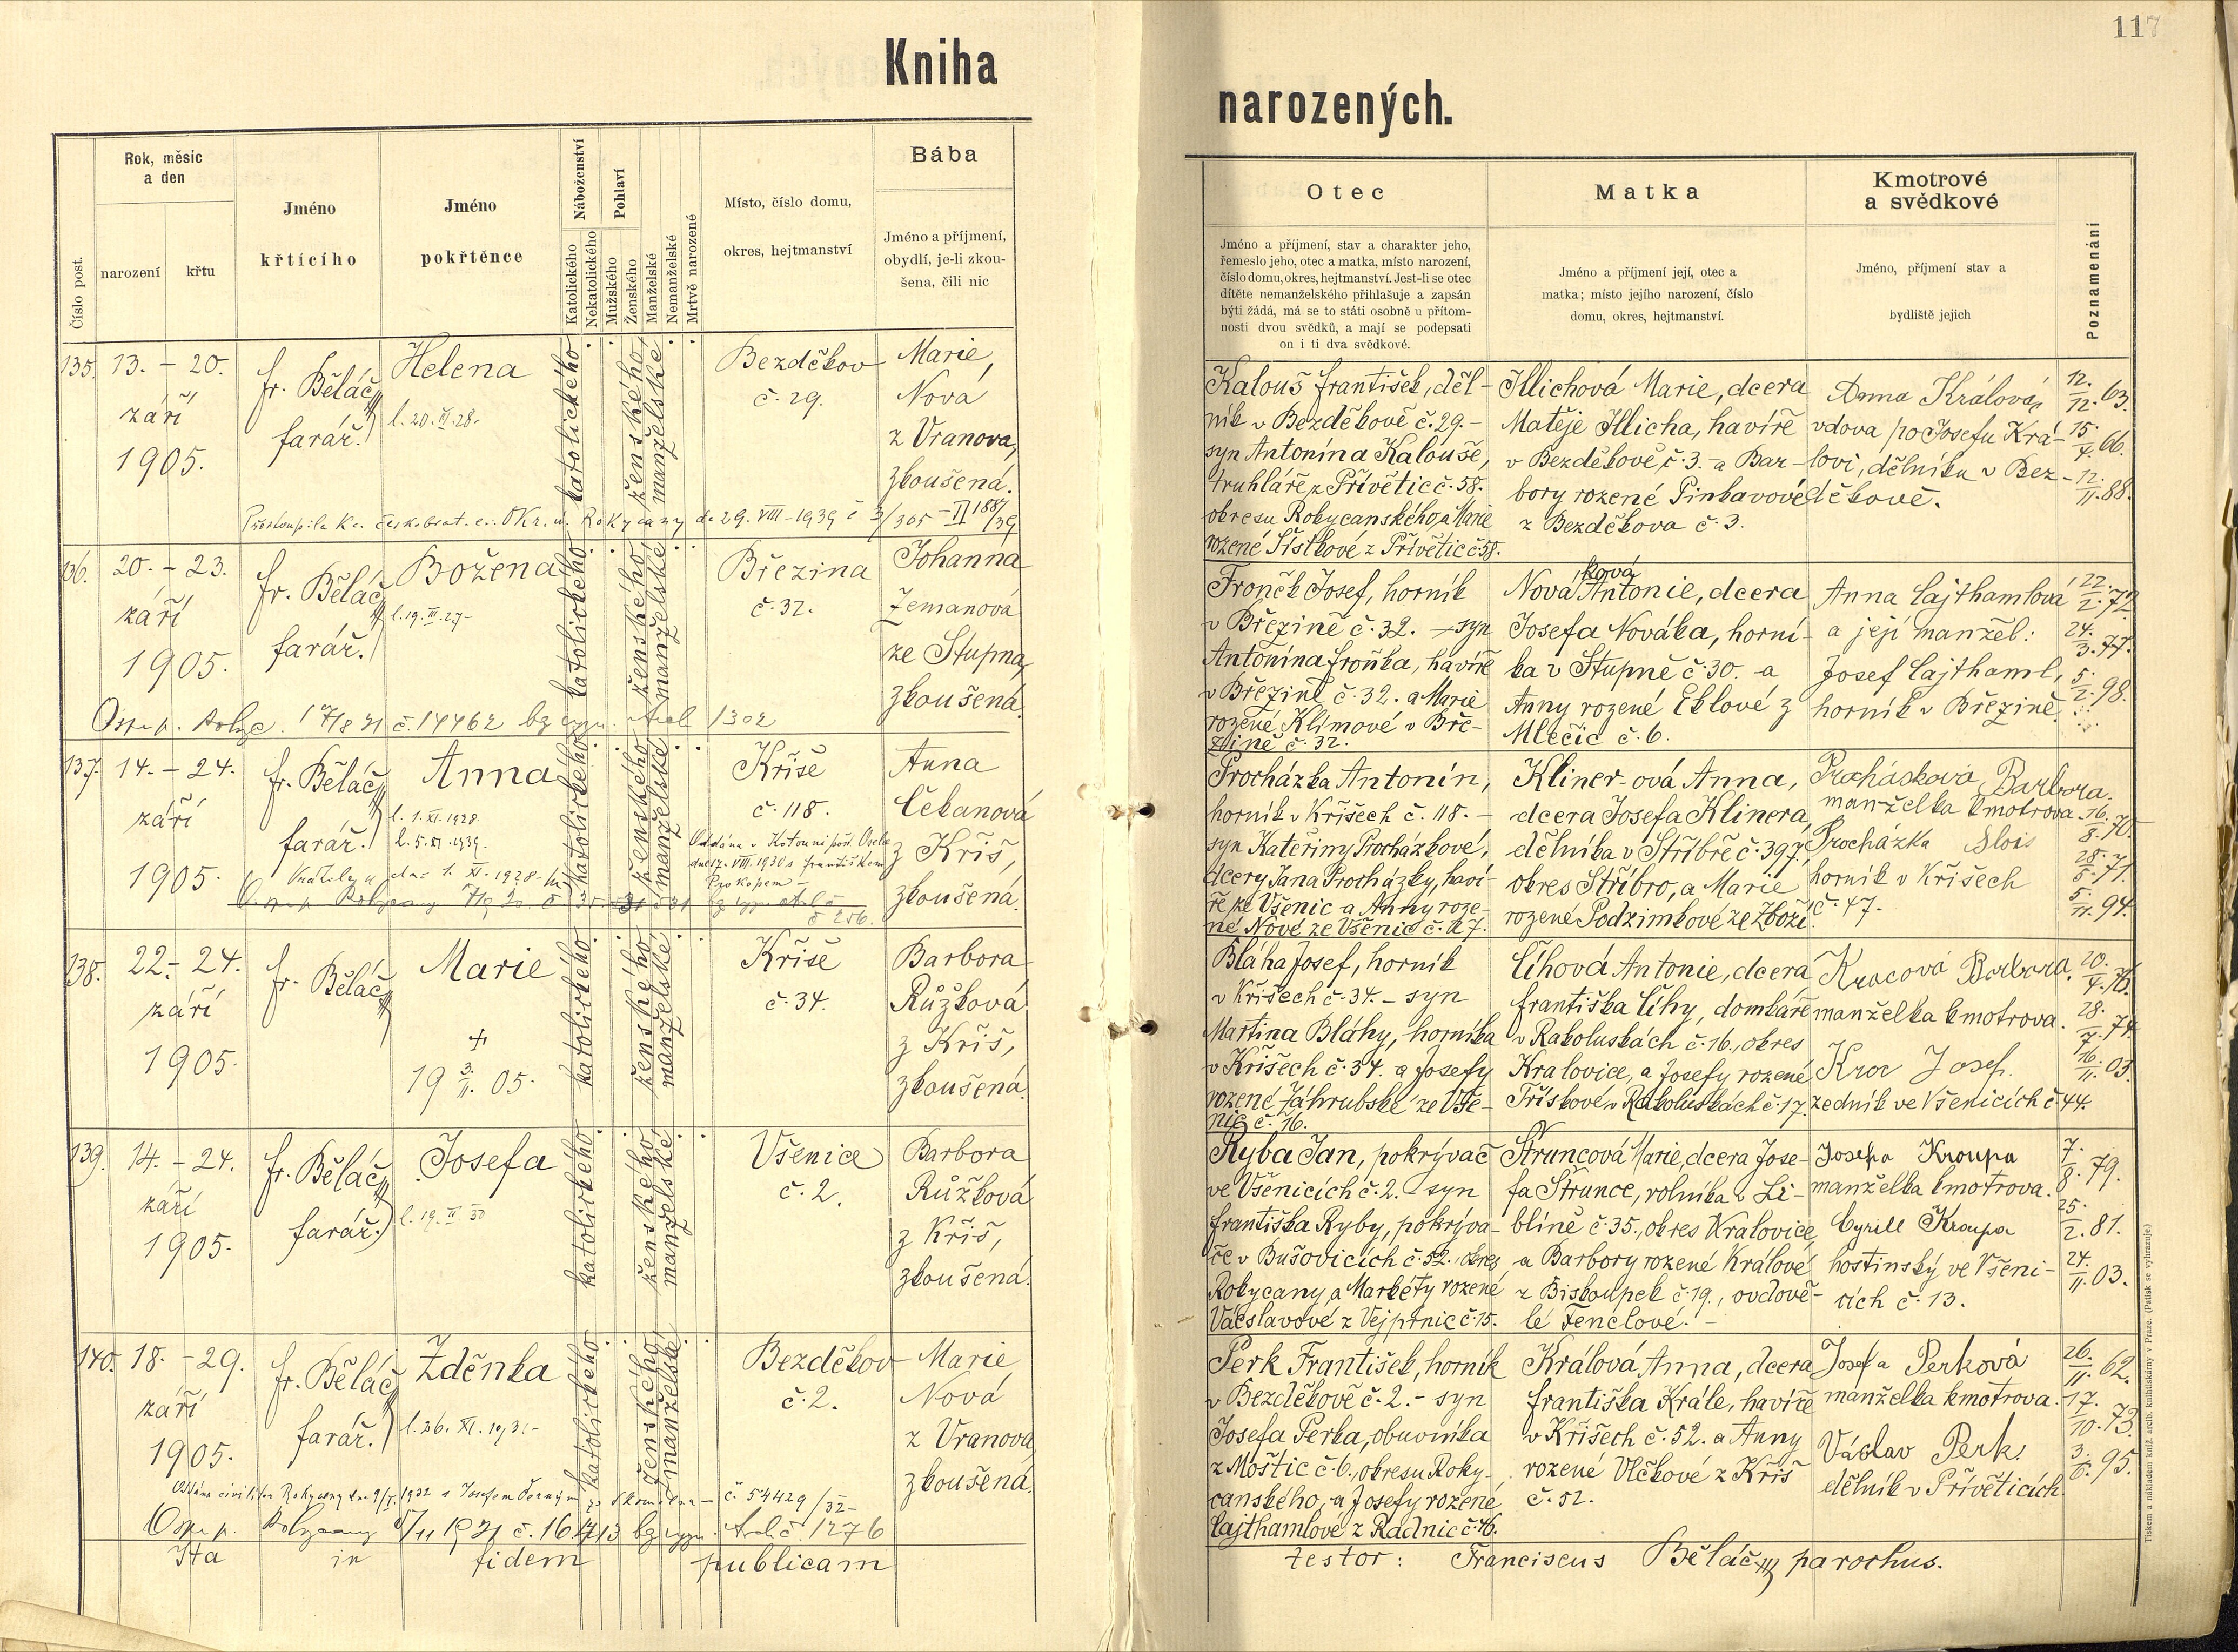 117
Kniha
narozených.
Číslo post.
Rok, měsíc
a den
narození
křtu
Jméno
křtícího
Jméno
pokřtěnce
Náboženství
Katolického
Nekatolického
Pohlaví
Mužského
Ženského
Manželské
Nemanželské
Mrtvě narozené
Místo, číslo domu,
okres, hejtmanství
Bába
Jméno a příjmení,
obydlí, je-li zkou-
šena, čili nic
Otec
Jméno a příjmení, stav a charakter jeho,
řemeslo jeho, otec a matka, místo narození,
číslo domu, okres, hejtmanství. Jest-li se otec
dítěte nemanželského přihlašuje a zapsán
býti žádá, má se to státi osobně u přítom-
nosti dvou svědků, a mají se podepsati
on i ti dva svědkové.
Matka
Jméno a příjmení její, otec a
matka; místo jejího narození, číslo
domu, okres, hejtmanství.
Kmotrové
a svědkové
Jméno, příjmení stav a
bydliště jejich
Poznamenání
135.
13. - 20.
září
1905.
fr. Běláč
farář.
Helena
l. 20. II. 28.
katolického
ženského
manželské
Bezděkov
č. 29.
Marie,
Nová
z Vranova,
zkoušená.
Kalouš František, děl-
ník v Bezděkově č. 29. -
syn Antonína Kalouše,
truhláře z Přívětic č. 58.
okresu Rokycanského, a Marie
rozené Šístkové z Přívětic č. 58.
Illichová Marie, dcera
Matěje Illicha, havíře
v Bezděkově č. 3. a Bar-
bory rozené Pinkavové
z Bezděkova č. 3.
Anna Králová,
vdova po Josefu Krá-
lovi, dělníku v Bez-
děkově.
12./12. 63.
15./4. 66.
12./11. 88.
136.
20. - 23.
září
1905.
fr. Běláč
farář.
Božena
l. 19. III. 27-
katolického
ženského
manželské
Březina
č. 32.
Johanna
Zemanová
ze Stupna,
zkoušená.
Froněk Josef, horník
v Březině č. 32. - syn
Antonína Froňka, havíře
v Březině č. 32. a Marie
rozené Klímové v Bře-
zině č. 32.
ková
Nová Antonie, dcera
Josefa Nováka, horní-
ka v Stupně č. 30. a
Anny rozené Eklové z
Mlečic č. 6.
Anna Lajthamlová
a její manžel:
Josef Lajthaml,
horník v Březině.
22./2. 72.
24./3. 77.
5./2. 98.
137.
14. - 24.
září
1905.
fr. Běláč
farář.
Anna
l. 1. XI. 1928.
l. 5. XI. 1939.
katolického
ženského
manželské
Kříše
č. 118.
Anna
Čekanová
z Kříš,
zkoušená.
Procházka Antonín,
horník v Kříšech č. 118. -
syn Kateřiny Procházkové,
dcery Jana Procházky, haví-
ře ze Všenic a Anny roze-
né Nové ze Všenic č. 27.
Kliner-ová Anna,
dcera Josefa Klinera,
dělníka v Stříbře č. 397,
okres Stříbro, a Marie
rozené Podzimkové ze Zboží.
Procházková Barbora.
manželka kmotrova.
Procházka Alois
horník v Kříšech
č. 47.
16./8. 70.
28./5. 71.
5./11. 94.
138.
22. - 24.
září
1905.
fr. Běláč
Marie
+
19 3./11. 05.
katolického
ženského
manželské
Kříše
č. 34.
Barbora
Růžková
z Kříš,
zkoušená.
Bláha Josef, horník
v Kříšech č. 34. - syn
Martina Bláhy, horníka
v Kříšech č. 34. a Josefy
rozené Záhrubské ze Vše-
nic č. 16.
Líhová Antonie, dcera
Františka Líhy, domkáře
v Rakoluskách č. 16., okres
Kralovice, a Josefy rozené
Třískové v Rakoluskách č. 17.
Krocová Barbora.
manželka kmotrova.
Kroc Josef.
zedník ve Všenicích č. 44.
20./4. 76.
28./7. 74.
16./11. 03.
139.
14. - 24.
září
1905.
fr. Běláč
farář.
Josefa
katolického
ženského
manželské
Všenice
č. 2.
Barbora
Růžková
z Kříš,
zkoušená.
Ryba Jan, pokrývač
ve Všenicích č. 2. - syn
Františka Ryby, pokrýva-
če v Bušovicích č. 52. okres
Rokycany, a Markéty rozené
Václavové z Vejprnic č. 15.
Štruncová Marie, dcera Jose-
fa Štrunce, rolníka v Li-
blíně č. 35., okres Kralovice,
a Barbory rozené Králové
z Biskoupek č. 19., ovdově-
lé Fenclové. -
Josefa Kroupa
manželka kmotrova.
Cyrill Kroupa
hostinský ve Všeni-
cích č. 13.
7./8. 79.
25./2. 81.
24./11. 03.
140.
18. - 29.
září
1905.
fr. Běláč
farář.
Zděnka
l. 26. XI. 1931-
katolického
ženského
manželské
Bezděkov
č. 2.
Marie
Nová
z Vranova
zkoušená.
Perk František, horník
v Bezděkově č. 2. - syn
Josefa Perka, obuvníka
z Moštic č. 6., okresu Roky-
canského, a Josefy rozené
Lajthamlové z Radnic č. 46.
Králová Anna, dcera
Františka Krále, havíře
v Kříšech č. 52. a Anny
rozené Vlčkové z Kříš
č. 52.
Josefa Perková
manželka kmotrova.
Václav Perk.
dělník v Příveticích.
26./11. 62.
17./10. 73.
3./6. 95.
Ita in fidem publicam
testor: Franciscus Běláč parochus.